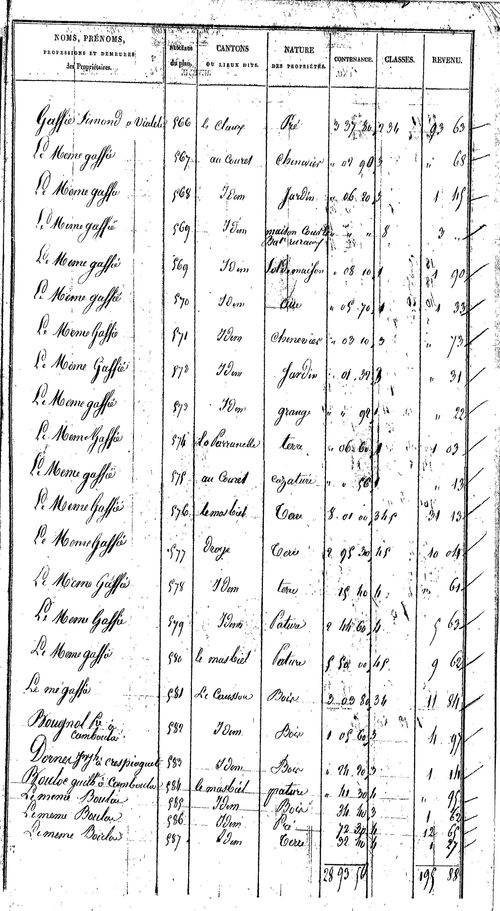 NOMS, PRÉNOMS, PROFESSIONS ET DEMEURES des Propriétaires. NUMÉROS du plan. CANTONS OU LIEUX DITS. NATURE DES PROPRIÉTÉS. CONTENANCE. CLASSES. REVENU.
Gaffié Simond 566 le Claux Pré 3 37 30 234 93 63
Le Meme gaffié 567 au Couret Chenevier " 02 90 3 " 68
Le Meme gaffié 568 Idem Jardin " 06 20 3 1 45
Le Meme gaffié 569 Idem maison " " " 8 3 "
Le Meme gaffié 569 Idem Sol de maison " 08 10 1 1 90
Le Meme gaffié 570 Idem " 05 70 1 1 33
Le Meme Gaffié 571 Idem Chenevier " 03 10 3 " 73
Le Même Gaffié 572 Idem Jardin " 01 32 3 " 31
Le Meme gaffié 573 Idem grange " " 92 1 " 22
Le Meme Gaffié 574 La Parranelle terre " 06 60 1 1 03
Le Meme gaffié 575 au Couret cazature " " 56 1 " 13
Le Meme Gaffié 576 le masbiel Terre 8 01 00 345 31 13
Le Meme Gaffié 577 Droye Terre 2 95 30 45 10 04
Le Meme Gaffié 578 Idem terre " 15 40 4 " 61
Le Meme Gaffié 579 Idem Pature 2 44 60 4 5 63
Le Meme gaffié 580 le masbiel Pature 5 50 00 45 9 62
Le me gaffié 581 Le Caussou Bois 3 03 80 34 11 84
Bougnol à Camboulan 582 Idem Bois 1 05 60 3 4 97
Dornes Josph à crespiaguet 583 Idem Bois " 24 20 3 1 14
Bouloc à Camboulan 584 le masbiel pature " 41 30 4 " 95
Le meme Boulou 585 Idem Bois 34 40 3 1 62
Le meme Boulou 586 Idem Pré 72 30 4 12 65
Le meme Boulou 587 Idem Terre 32 40 4 1 27
28 93 50 195 88